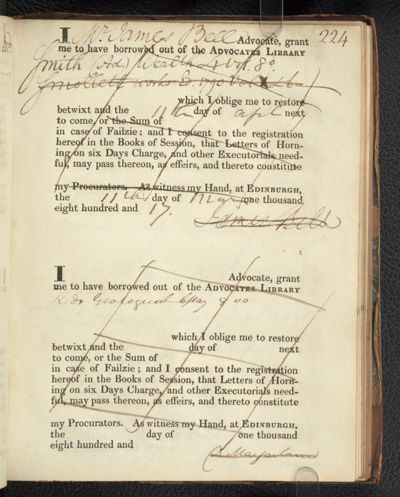 224
I Mr James Bell Advocate, grant
me to have borrowed out of the ADVOCATES LIBRARY
Smith (Ad) Wealth 4 vol. 8o
Smollett works Ed. 1790 Vol
which I oblige me to restore
betwixt and the 11th day of April next
to come, or the Sum of
in case of Failzie; and I consent to the registration
hereof in the Books of Session, that Letters of Horn-
ing on six Days Charge, and other Executorials need-
ful, may pass thereon, as effeirs, and thereto constitute
my Procurators. As witness my Hand, at EDINBURGH,
the 11th day of March one thousand
eight hundred and 17.
James Bell
I Advocate, grant
me to have borrowed out of the ADVOCATES LIBRARY
Geological Essay 8 vo
which I oblige me to restore
betwixt and the day of next
to come, or the Sum of
in case of Failzie; and I consent to the registration
hereof in the Books of Session, that Letters of Horn-
ing on six Days Charge, and other Executorials need-
ful, may pass thereon, as effeirs, and thereto constitute
my Procurators. As witness my Hand, at EDINBURGH,
the day of one thousand
eight hundred and
Macfarlane